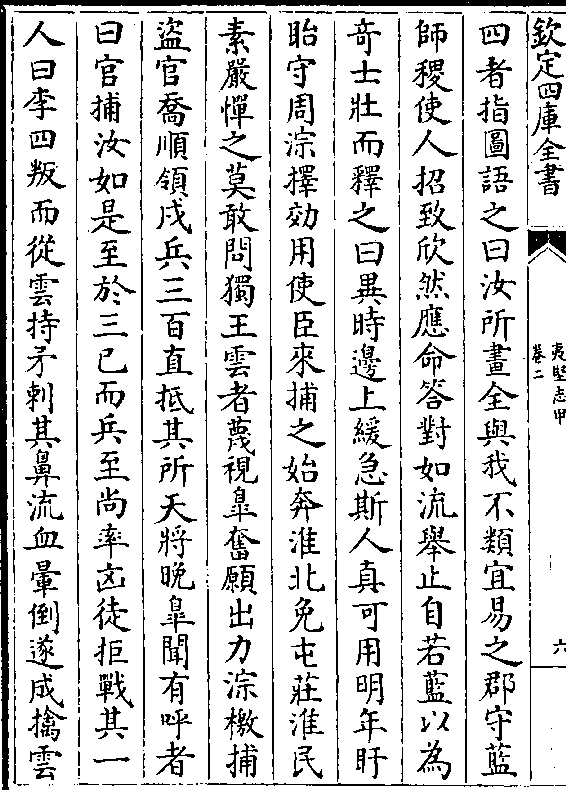 欽定四庫全書
夷堅志甲
卷二
六
四者指圖語之曰汝所畫全與我不類宜易之郡守藍
師稷使人招致欣然應命答對如流舉止自若藍以為
奇士壯而釋之曰異時邊上緩急斯人真可用明年盱
眙守周淙擇効用使臣來捕之始奔淮北免屯莊淮民
素嚴憚之莫敢問獨王雲者蔑視臯奮願出力淙檄捕
盜官喬順領戍兵三百直抵其所天將晚臯聞有呼者
曰官捕汝如是至於三已而兵至尚率凶徒拒戰其一
人曰李四叛而從雲持矛刺其鼻流血暈倒遂成擒雲